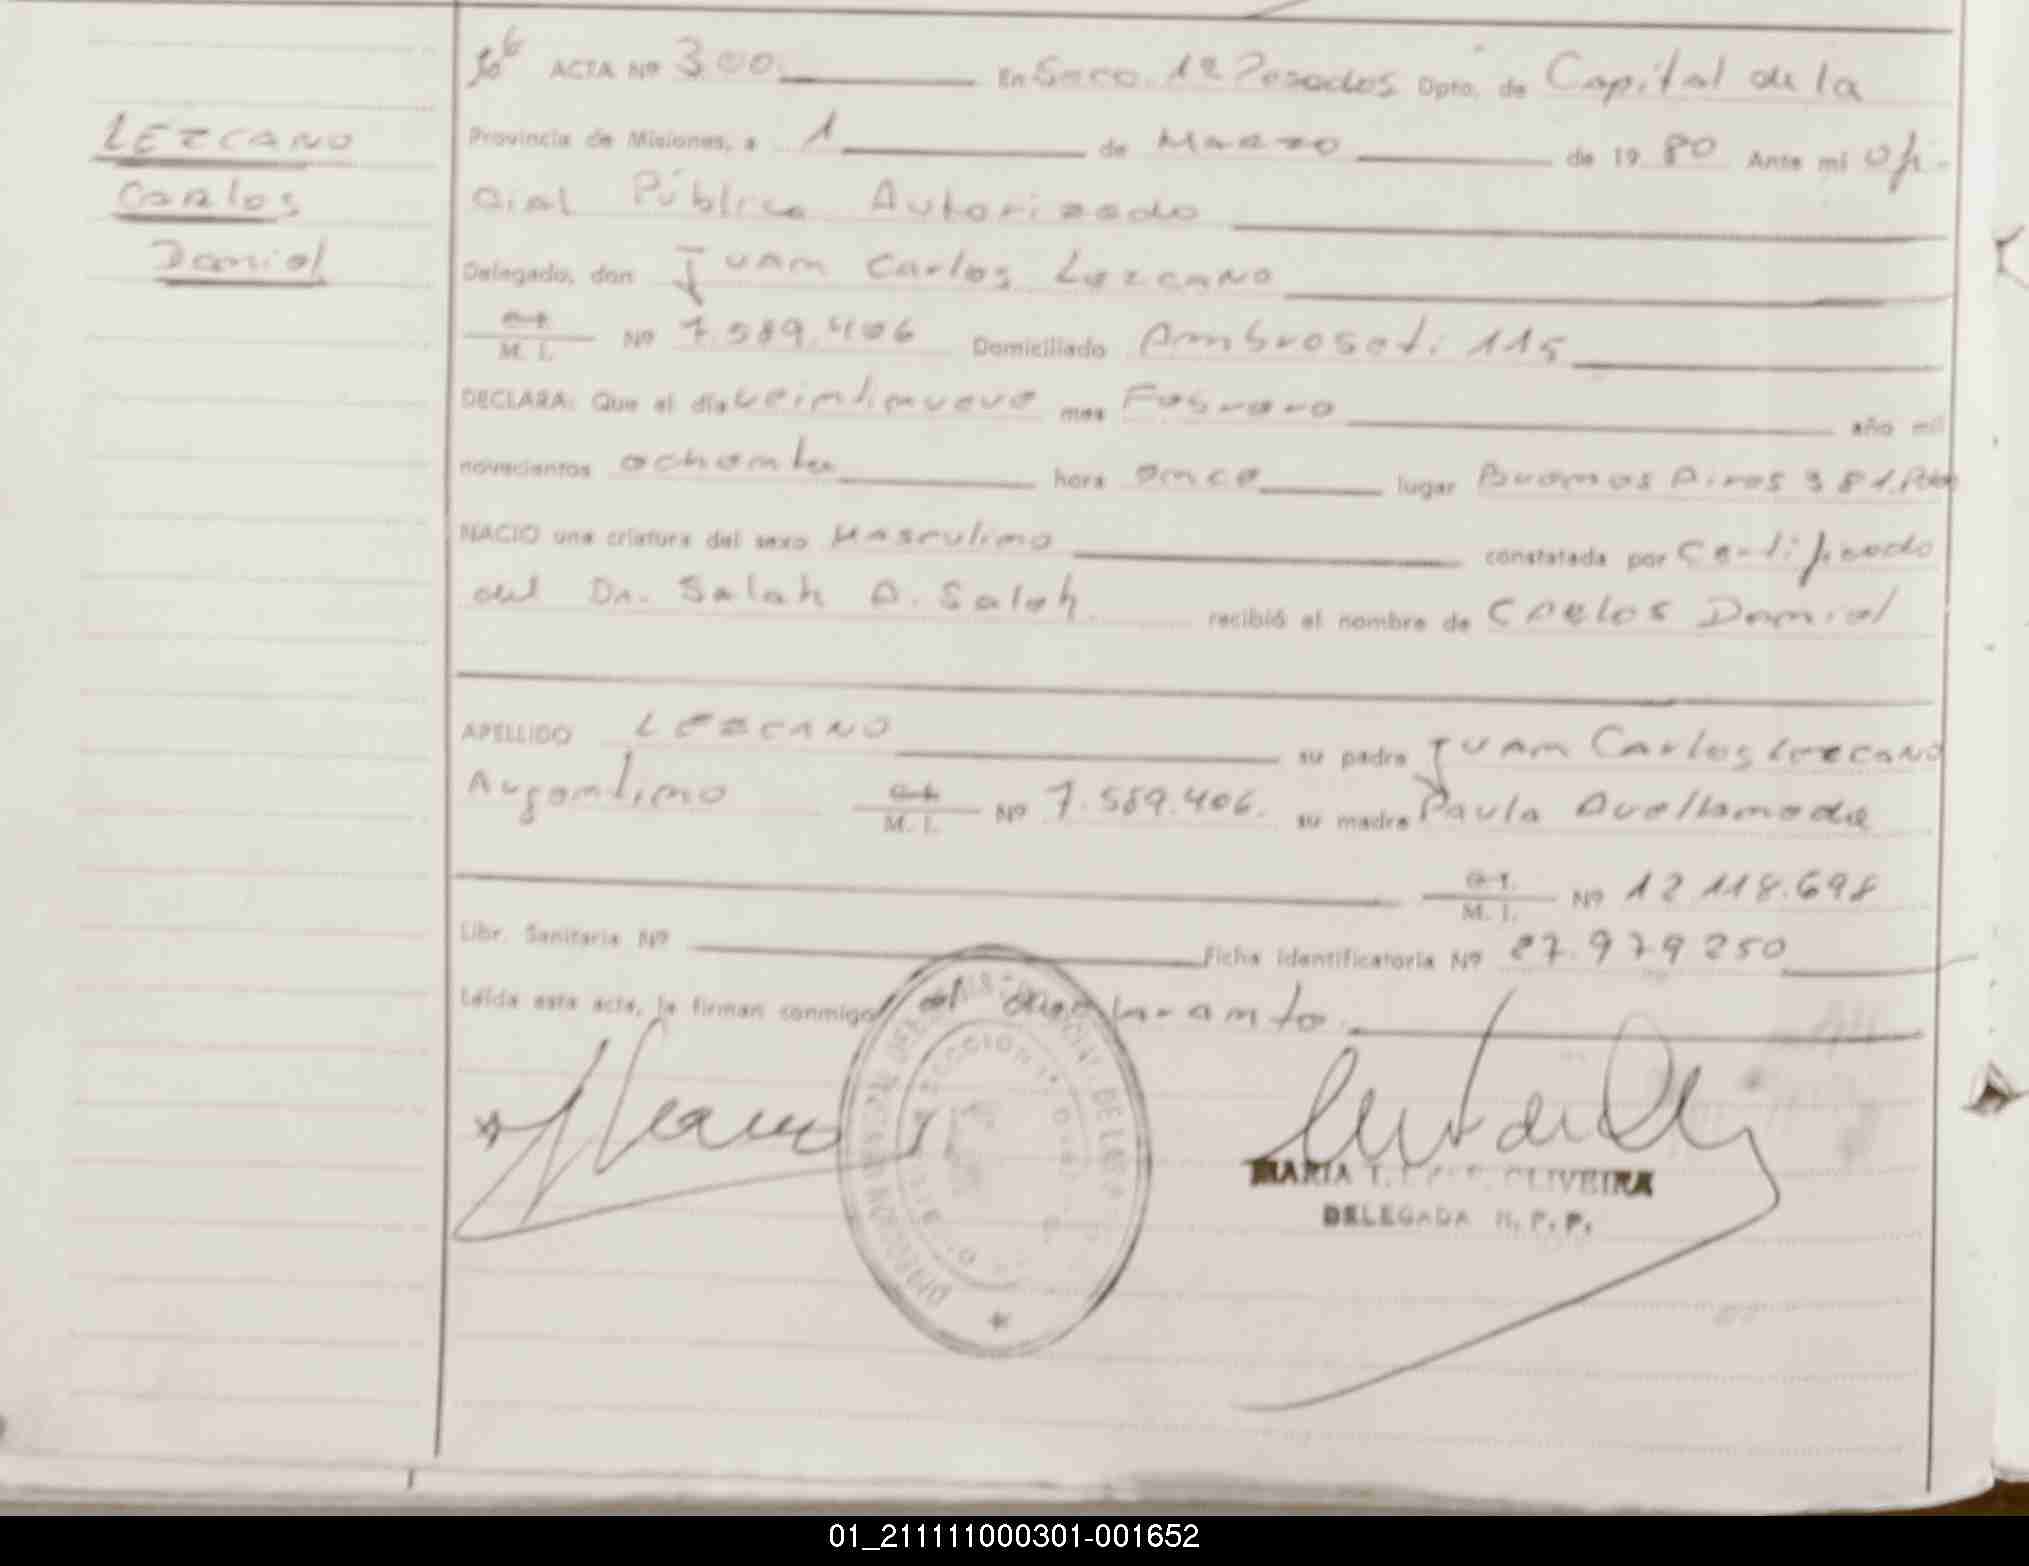 LEZCANO
Carlos
Daniel
ACTA Nº 300. En Secc. 1ª Posadas Dpto. de Capital de la
Provincia de Misiones, a 1 de Marzo de 19 80 Ante mi Ofi-
cial Público Autorizado
Delegado, don Juan Carlos Lezcano
C.I. M. I. Nº 7.589.406 Domiciliado Ambrosetti 115
DECLARA: Que el día veintinueve mes Febrero año mil
novecientos ochenta hora once lugar Buenos Aires 381.
NACIO una criatura del sexo Masculino constatada por Certificado
del Dr. Salah A. Saleh. recibió el nombre de Carlos Daniel
APELLIDO LEZCANO su padre Juan Carlos Lezcano
Argentino C.I. M. I. Nº 7.589.406. su madre Paula Avellaneda
C.I. M. I. Nº 12.118.698
Libr. Sanitaria Nº Ficha Identificatoria Nº 27.979.250
Leída esta acta, la firman conmigo el declarante.
MARIA OLIVEIRA
DELEGADA R. P. P.
01_211111000301-001652